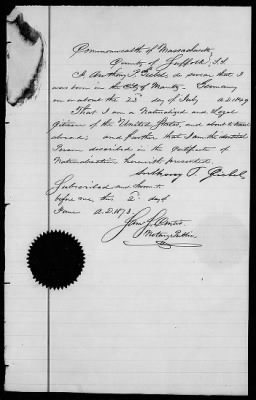 Commonwealth of Massachusetts
County of Suffolk S.S
I Anthony P. do swear that I
was born in the City of Germany
on or about the 23d day of July A.D. 1849
That I am a Naturalized and Legal
Citizen of the United States, and about to travel
abroad; and further that I am the identical
Person described in the Certificate of
Naturalization herewith presented.
Anthony P.
Subscribed and sworn to
before me this 2d day of
June A.D. 1873
Notary Public